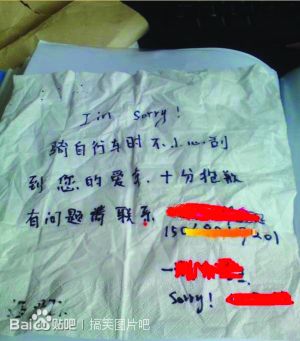 I'm Sorry!
骑自行车时 不小心刮
到 您的爱车，十分抱歉
有问题请联系
Sorry!
Bai 贴吧 | 搞笑图片吧